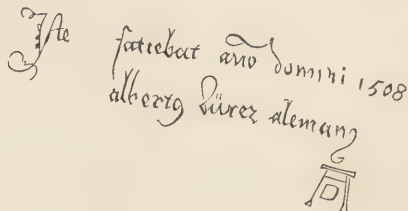 Iste faciebat año domini 1508
albertꝯ dürer alemanꝯ
AD